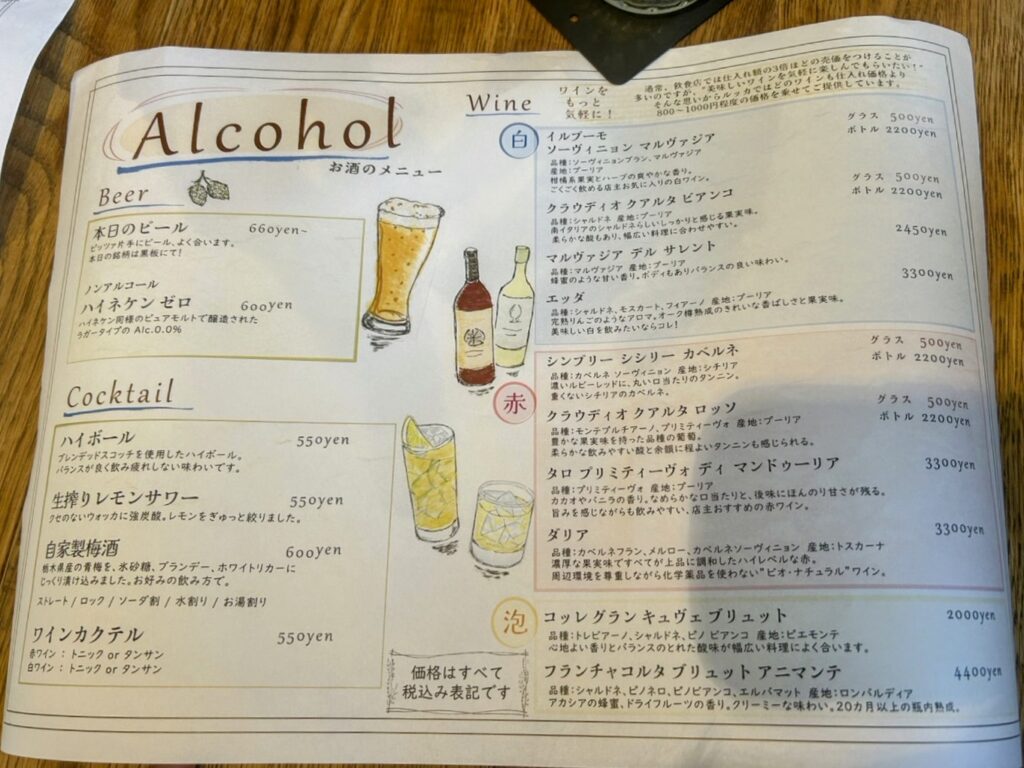 Alcohol
お酒のメニュー
Beer
本日のビール 660yen~
ピッツァ片手にビール、よく合います。
本日の銘柄は黒板にて!
ノンアルコール
ハイネケン ゼロ 600yen
ハイネケン同様のピュアモルトで醸造された
ラガータイプの Alc.0.0%
Cocktail
ハイボール 550yen
ブレンデッドスコッチを使用したハイボール。
バランスが良く飲み疲れしない味わいです。
生搾りレモンサワー 550yen
クセのないウォッカに強炭酸。レモンをぎゅっと絞りました。
自家製梅酒 600yen
栃木県産の青梅を、氷砂糖、ブランデー、ホワイトリカーに
じっくり漬け込みました。お好みの飲み方で。
ストレート / ロック / ソーダ割 / 水割り / お湯割り
ワインカクテル 550yen
赤ワイン : トニック or タンサン
白ワイン : トニック or タンサン
価格はすべて
税込み表記です
Wine
ワインを
もっと
気軽に!
通常、飲食店では仕入れ額の3倍ほどの売価をつけることが
多いのですが、"美味しいワインを気軽に楽しんでもらいたい!"
そんな思いからルッカではどのワインも仕入れ価格より
800~1000円程度の価格を乗せてご提供しています。
白
イルブーモ
ソーヴィニョン マルヴァジア
グラス 500yen
ボトル 2200yen
品種:ソーヴィニョンブラン、マルヴァジア
産地:プーリア
柑橘系果実とハーブの爽やかな香り。
ごくごく飲める店主お気に入りの白ワイン。
クラウディオ クアルタ ビアンコ
グラス 500yen
ボトル 2200yen
品種:シャルドネ 産地:プーリア
南イタリアのシャルドネらしいしっかりと感じる果実味。
柔らかな酸もあり、幅広い料理に合わせやすい。
マルヴァジア デル サレント 2450yen
品種:マルヴァジア 産地:プーリア
蜂蜜のような甘い香り。ボディもありバランスの良い味わい。
エッダ 3300yen
品種:シャルドネ、モスカート、フィアーノ 産地:プーリア
完熟りんごのようなアロマ。オーク樽熟成のきれいな香ばしさと果実味。
美味しい白を飲みたいならコレ!
赤
シンプリー シシリー カベルネ
グラス 500yen
ボトル 2200yen
品種:カベルネ ソーヴィニョン 産地:シチリア
濃いルビーレッドに、丸い口当たりのタンニン。
重くないシチリアのカベルネ。
クラウディオ クアルタ ロッソ
グラス 500yen
ボトル 2200yen
品種:モンテプルチアーノ、プリミティーヴォ 産地:プーリア
豊かな果実味を持った品種の葡萄。
柔らかな飲みやすい酸と余韻に程よいタンニンも感じられる。
タロ プリミティーヴォ ディ マンドゥーリア 3300yen
品種:プリミティーヴォ 産地:プーリア
カカオやバニラの香り。なめらかな口当たりと、後味にほんのり甘さが残る。
旨みを感じながらも飲みやすい、店主おすすめの赤ワイン。
ダリア 3300yen
品種:カベルネフラン、メルロー、カベルネソーヴィニョン 産地:トスカーナ
濃厚な果実味ですべてが上品に調和したハイレベルな赤。
周辺環境を尊重しながら化学薬品を使わない"ビオ・ナチュラル"ワイン。
泡
コッレ グラン キュヴェ ブリュット 2000yen
品種:トレビアーノ、シャルドネ、ピノ ビアンコ 産地:ピエモンテ
心地よい香りとバランスのとれた酸味が幅広い料理によく合います。
フランチャコルタ ブリュット アニマンテ 4400yen
品種:シャルドネ、ピノネロ、ピノビアンコ、エルバマット 産地:ロンバルディア
アカシアの蜂蜜、ドライフルーツの香り。クリーミーな味わい。20カ月以上の瓶内熟成。